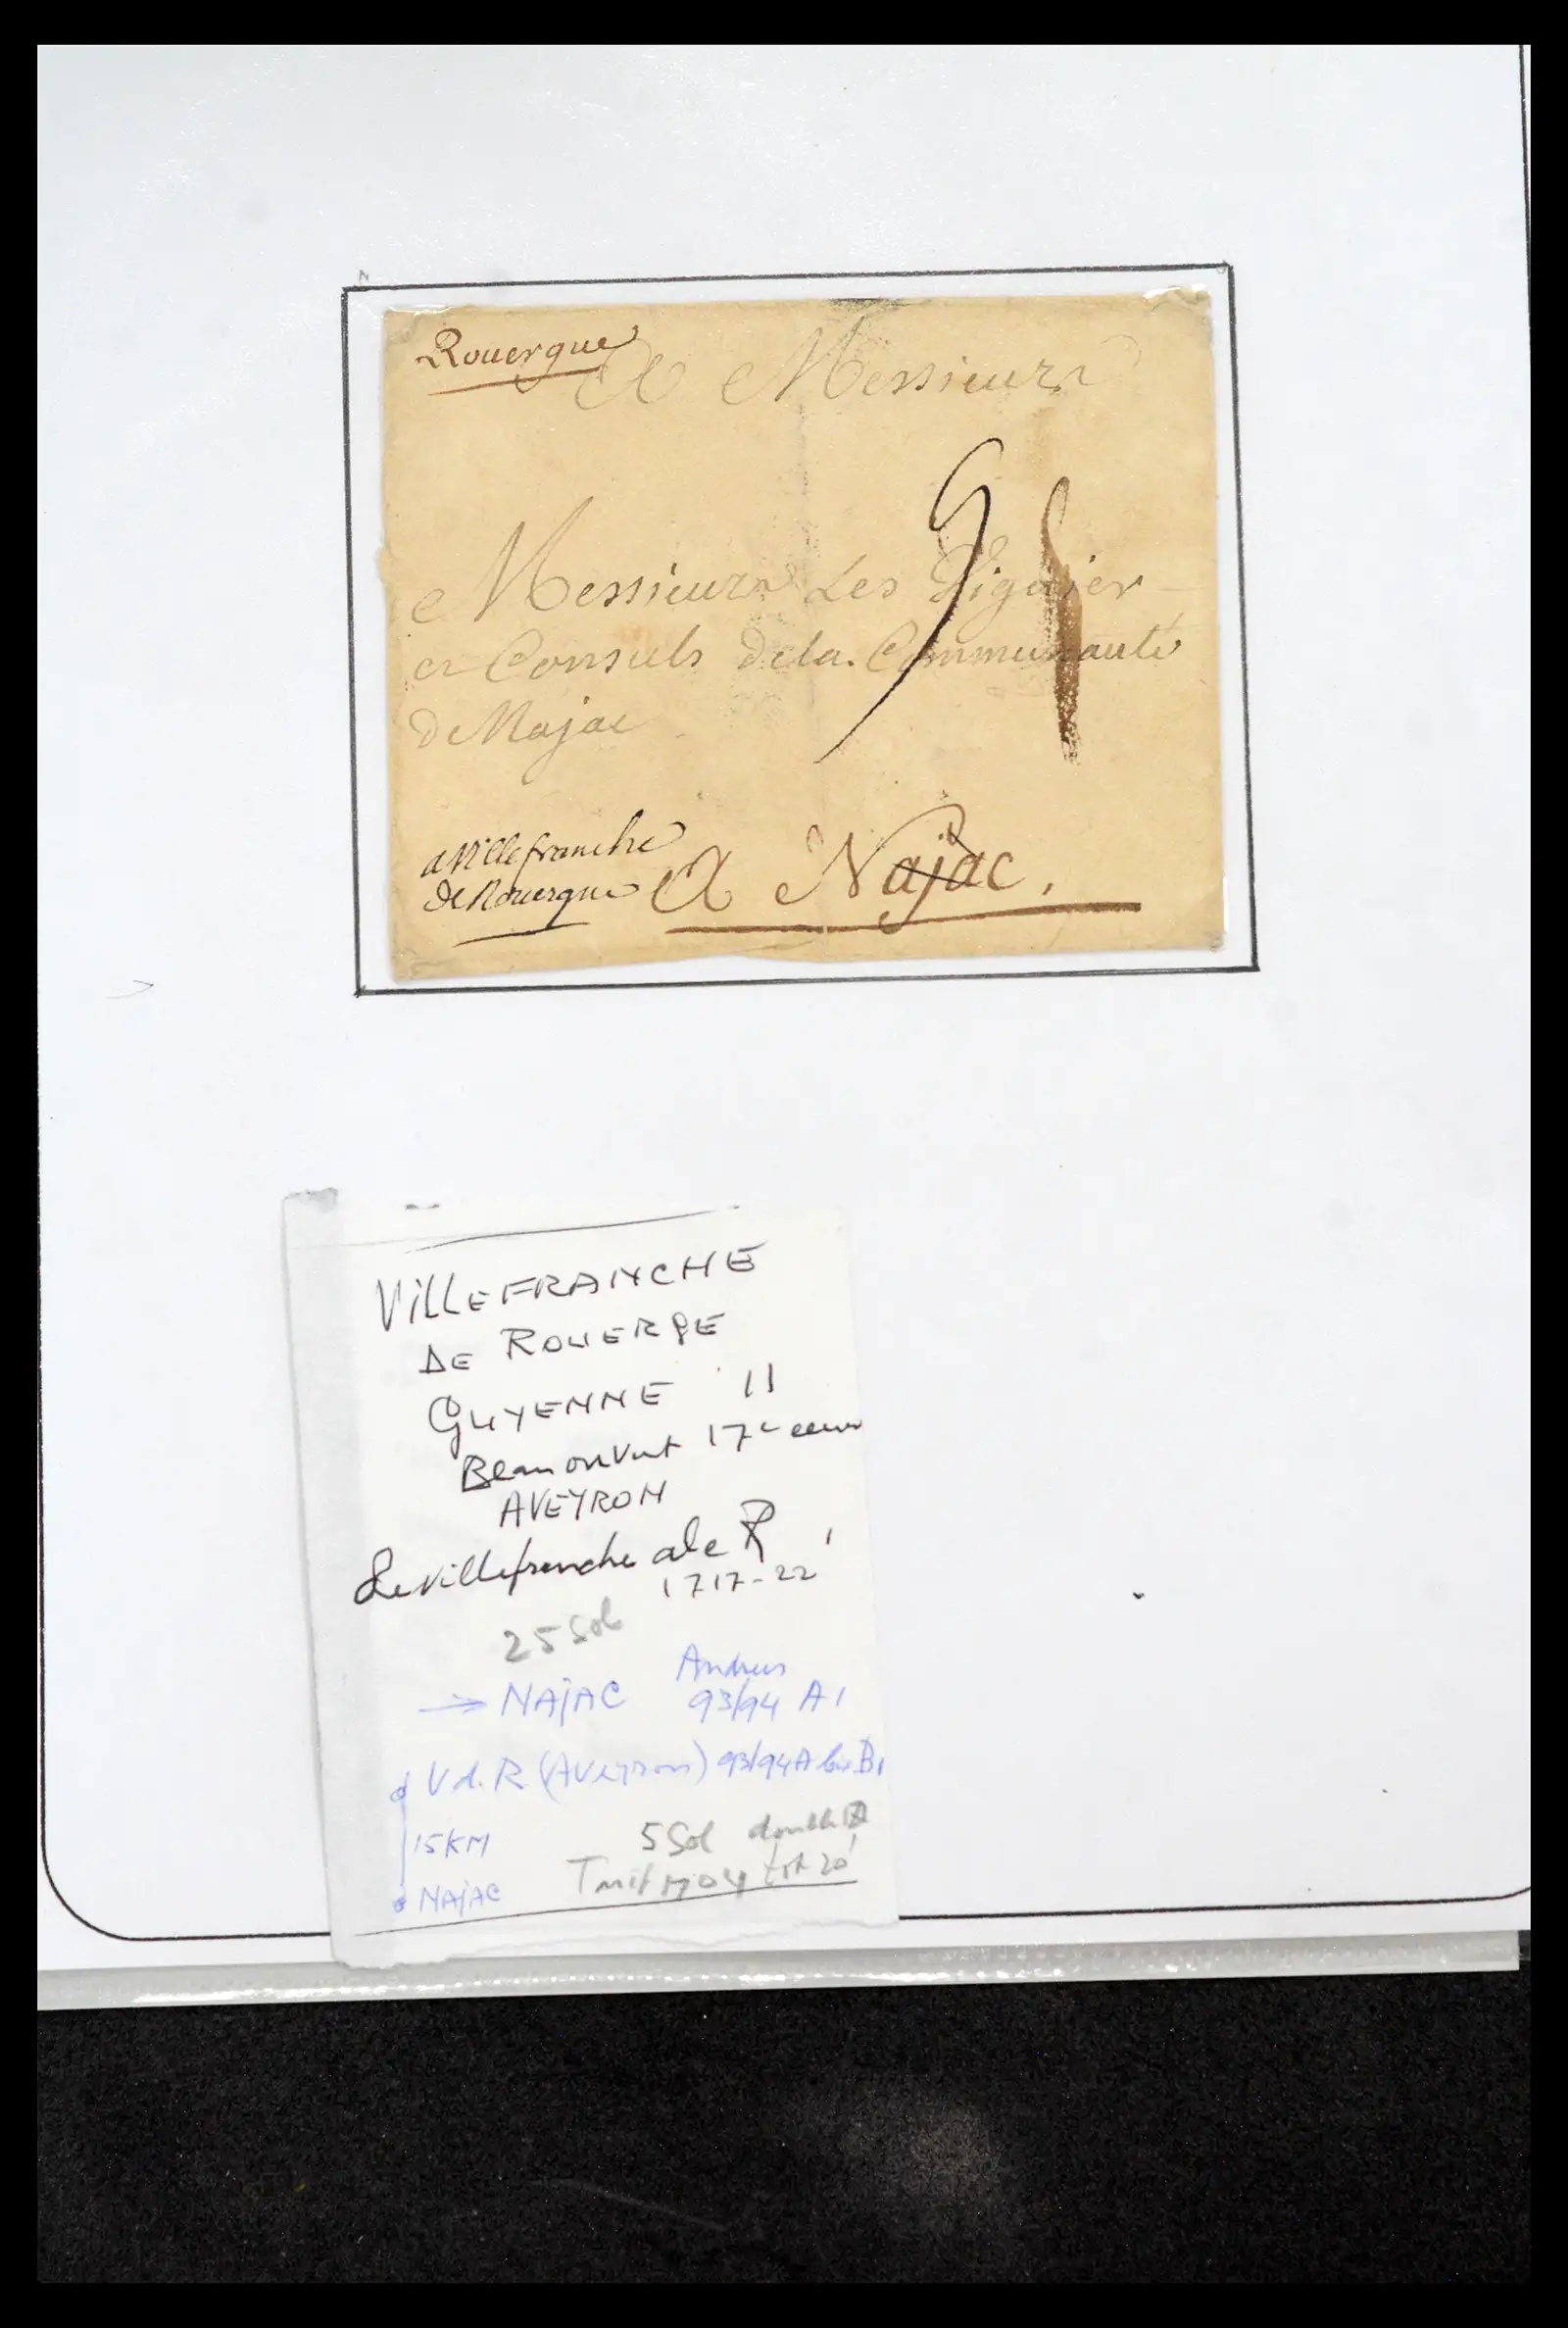 Rouergue
A Messieurs
Messieurs Les Viguier
et Consuls de la Communauté
de Najac
a Villefranche
de Rouergue
A Najac.
VILLEFRANCHE
DE ROUERGE
GUYENNE 11
17e
AVEYRON
De villefranche de R
1717-22
25 Sol
→ NAJAC
93/94 A1
V d. R (Aveyron) 93/94 A B1
15 KM
NAJAC
5 Sol double
Tarif 1704 tot 20